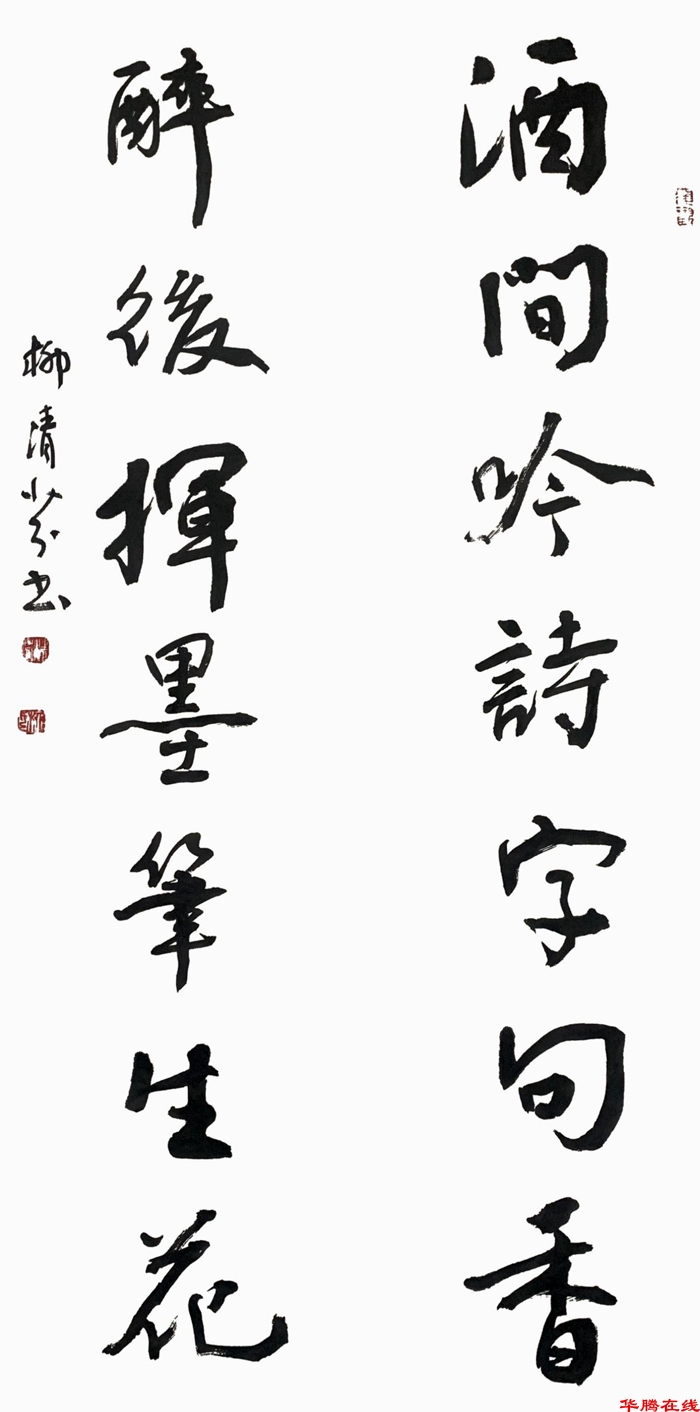 酒間吟詩字句香
醉後揮墨筆生花
柳清芬书
华腾在线